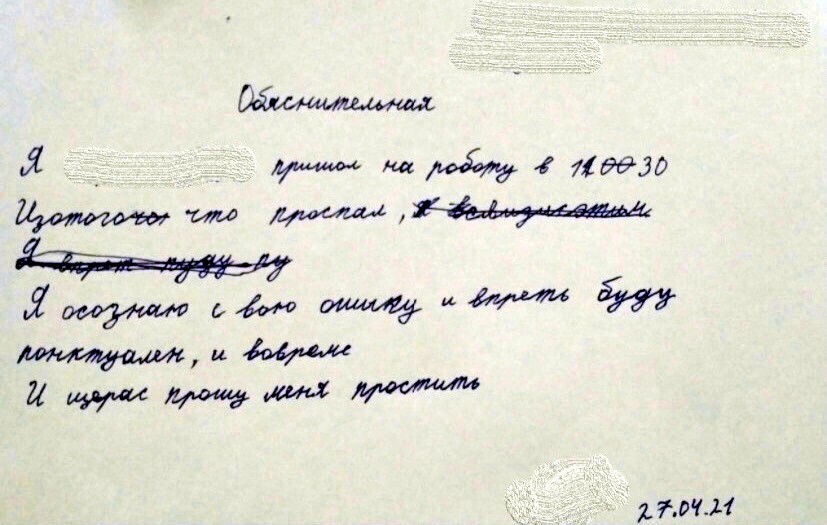 Обяснительная
Я пришол на роботу в 11 00 30
Изотогочо что проспал, я всвязисэтим
Я впреть пуду пу
Я осознаю с вою ошыку и впреть буду
понктуален, и вовреме
И щерас прошу меня простить
27.04.21